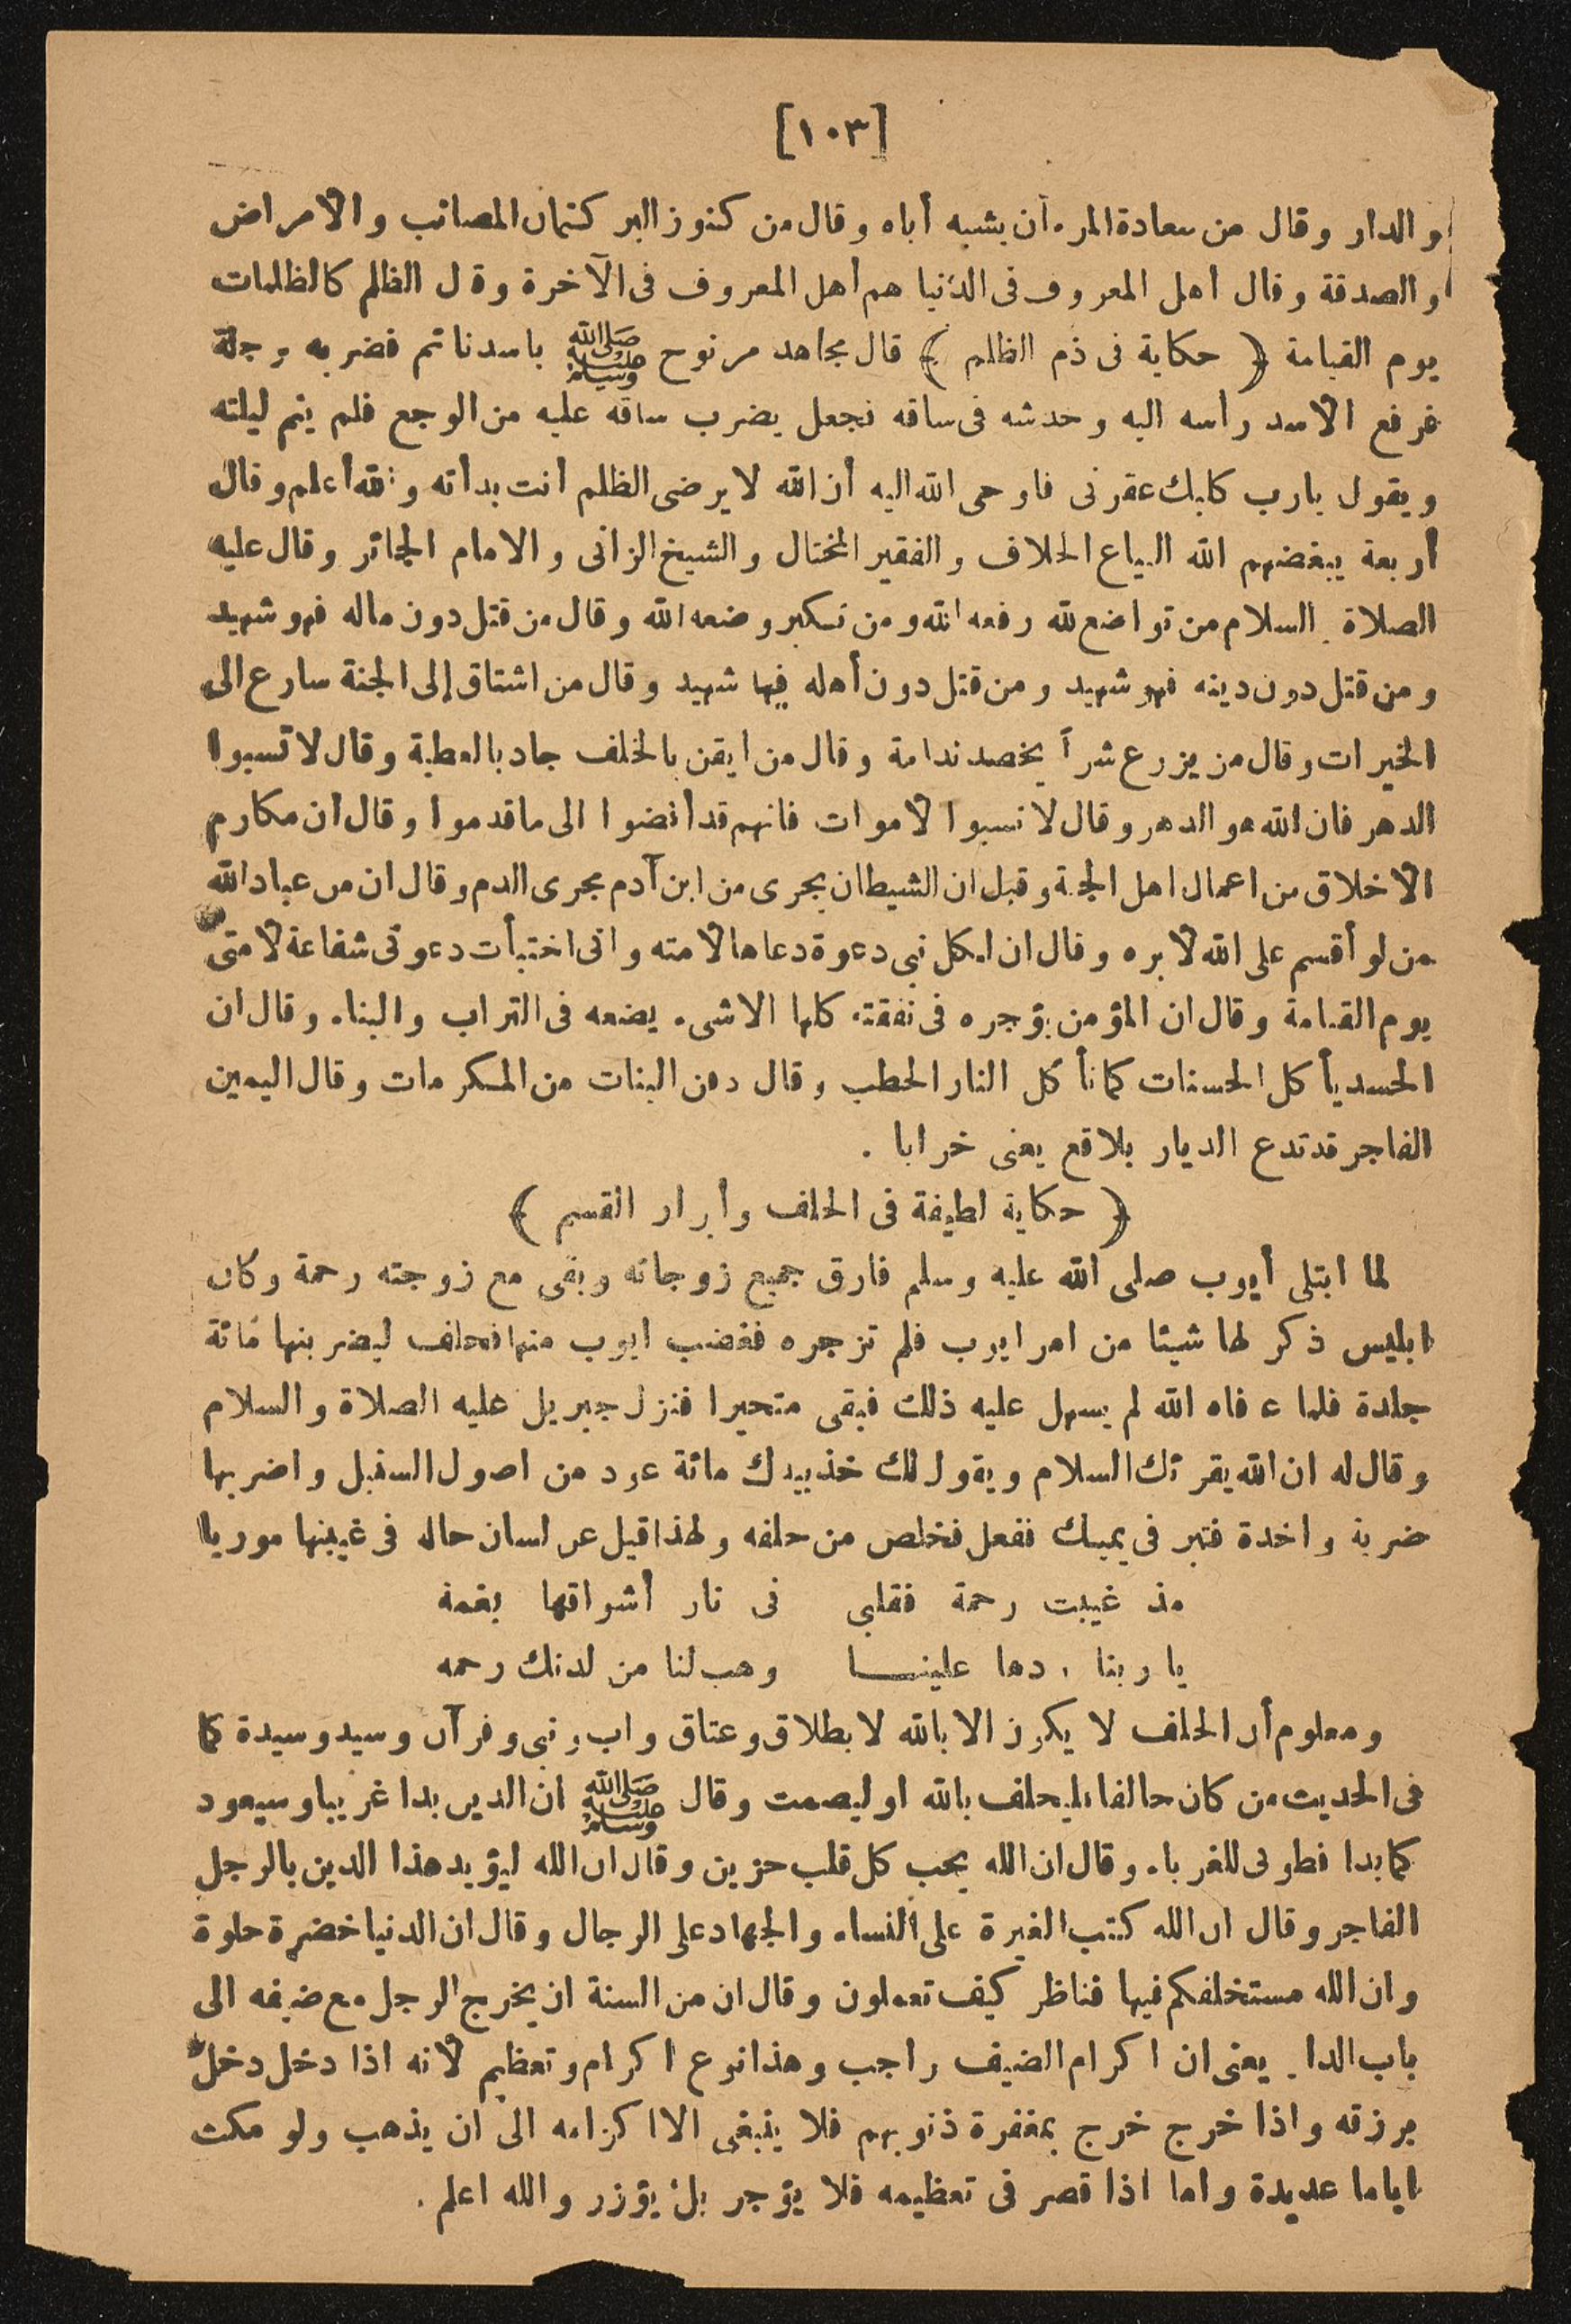 [١٠٣]
والدار وقال من سعادة المرء أن يشبه أباه وقال من كنوز البر كتمان المصائب والامراض
والصدقة وقال أهل المعروف فى الدنيا هم أهل المعروف فى الآخرة وقال الظلم كالظلمات
يوم القيامة ﴿ حكاية فى ذم الظلم ﴾ قال مجاهد مر نوح ﷺ باسد نائم فضربه برجله
فرفع الاسد رأسه اليه وخدشه فى ساقه فجعل يضرب ساقه عليه من الوجع فلم ينم ليلته
ويقول يارب كلبك عقرنى فاوحى الله اليه أن الله لا يرضى الظلم أنت بدأته والله أعلم وقال
أربعة يبغضهم الله البياع الحلاف والفقير المختال والشيخ الزانى والامام الجائر وقال عليه
الصلاة والسلام من تواضع لله رفعه الله ومن تكبر وضعه الله وقال من قتل دون ماله فهو شهيد
ومن قتل دون دينه فهو شهيد ومن قتل دون أهله فيها شهيد وقال من اشتاق إلى الجنة سارع الى
الخيرات وقال من يزرع شراً يحصد ندامة وقال من ايقن بالخلف جاد بالعطية وقال لا تسبوا
الدهر فان الله هو الدهر وقال لا تسبوا الاموات فانهم قد أفضوا الى ما قدموا وقال ان مكارم
الاخلاق من اعمال اهل الجنة وقيل ان الشيطان يجرى من ابن آدم مجرى الدم وقال ان من عباد الله
من لو أقسم على الله لابره وقال ان لكل نبى دعوة دعاها لامته وانى اختبأت دعوتى شفاعة لامتى
يوم القيامة وقال ان المؤمن يؤجر ه فى نفقته كلها الا شىء يضعه فى التراب والبناء وقال ان
الحسد يأكل الحسنات كما تأكل النار الحطب وقال دفن البنات من المكرمات وقال اليمين
الفاجر قد تدع الديار بلاقع يعنى خرابا .
﴿ حكاية لطيفة فى الحلف وأبرار القسم ﴾
لما ابتلى أيوب صلى الله عليه وسلم فارق جميع زوجاته وبقى مع زوجته رحمة وكان
ابليس ذكر لها شيئا من امر ايوب فلم تزجره فغضب ايوب منها فحلف ليضربنها مائة
جلدة فلما عافاه الله لم يسهل عليه ذلك فبقى متحيرا فنزل جبريل عليه الصلاة والسلام
وقال له ان الله يقرئك السلام ويقول لك خذ بيدك مائة عود من اصول السنبل واضربها
ضربة واحدة فتبر فى يمينك ففعل فخلص من حلفه ولهذا قيل عن لسان حاله فى غيبتها موريا
مذ غيبت رحمة فقلبى فى نار أشواقها بغمة
يا ربنا ردها علينا وهب لنا من لدنك رحمه
ومعلوم أن الحلف لا يكون الا بالله لا بطلاق وعتاق واب ونبى وقرآن وسيد وسيدة كما
فى الحديث من كان حالفا فليحلف بالله او ليصمت وقال ﷺ ان الدين بدا غريبا وسيعود
كما بدا فطوبى للغرباء وقال ان الله يحب كل قلب حزين وقال ان الله ليؤيد هذا الدين بالرجل
الفاجر وقال ان الله كتب الغيرة على النساء والجهاد على الرجال وقال ان الدنيا خضرة حلوة
وان الله مستخلفكم فيها فناظر كيف تعملون وقال ان من السنة ان يخرج الرجل مع ضيفه الى
باب الدار يعنى ان اكرام الضيف واجب وهذا نوع اكرام وتعظيم لانه اذا دخل دخل
برزقه واذا خرج خرج بمغفرة ذنوبهم فلا ينبغى الا اكرامه الى ان يذهب ولو مكث
اياما عديدة واما اذا قصر فى تعظيمه فلا يؤجر بل يؤزر والله اعلم .